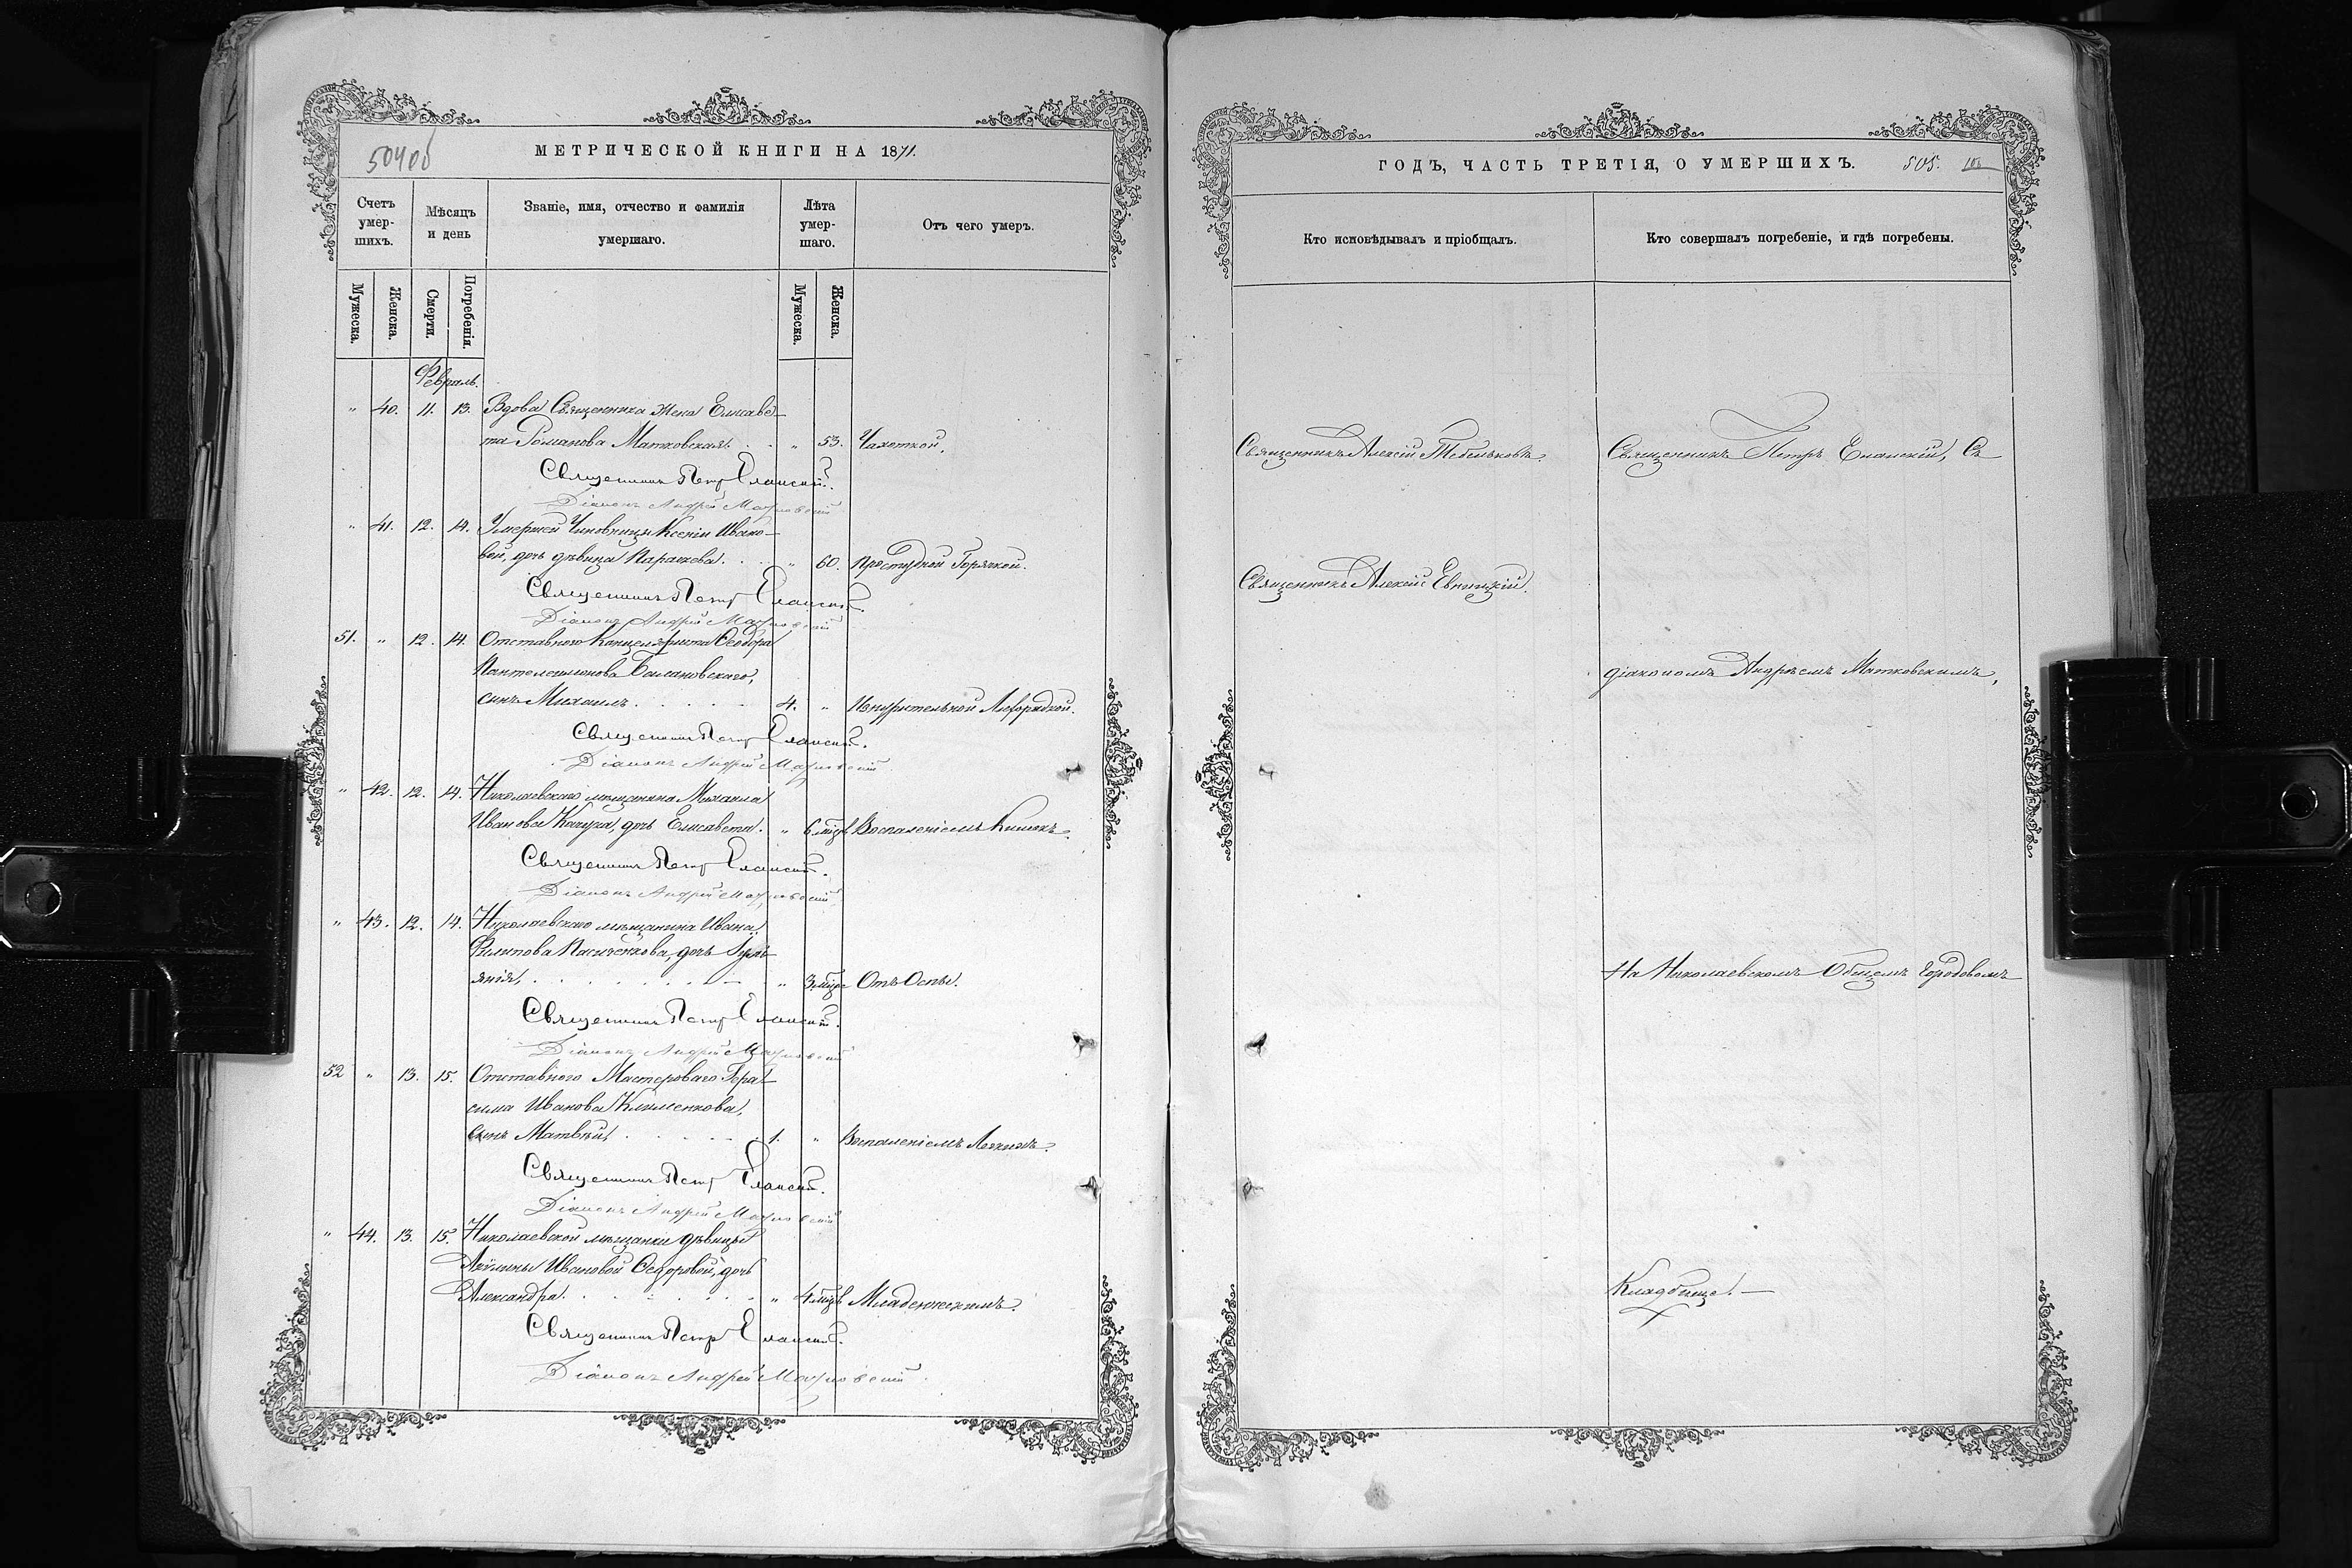 504об
МЕТРИЧЕСКОЙ КНИГИ НА 1871.
Счетъ умер-шихъ.
Мѣсяцъ и день
Званіе, имя, отчество и фамилія умершаго.
Лѣта умер-шаго.
Отъ чего умеръ.
Мужеска. Женска. Смерти. Погребенія. Мужеска. Женска.
Февраль.
" 40. 11. 13. Вдова Священника жена Елисаве-
та Романова Матковская. . . " 53. Чахоткой.
Священникъ Петръ Еланскій.
Діаконъ Андрей Матковскій
" 41. 12. 14. Умершей Чиновницы Ксеніи Ивано-
вой, дочь дѣвица Параскева. . . " 60. Простудной Горячкой.
Священникъ Петръ Еланскій.
Діаконъ Андрей Матковскій
51. " 12. 14. Отставного Канцеляриста Ѳеодора
Пантелеимонова
сынъ Михаилъ . . . . . 4. " Изнурительной Лихорадкой.
Священникъ Петръ Еланскій.
Діаконъ Андрей Матковскій
" 42. 12. 14. Николаевскаго мѣщанина Михаила
Иванова дочь Елисавета. " 6 мцв Воспаленіемъ Кишекъ.
Священникъ Петръ Еланскій.
Діаконъ Андрей Матковскій
" 43. 12. 14. Николаевскаго мѣщанина Ивана
Филипова Пасиченкова, дочь Іулі-
янія, . . . . . . . " 3 мцв Отъ Оспы.
Священникъ Петръ Еланскій.
Діаконъ Андрей Матковскій
52 " 13. 15. Отставного Мастероваго Гера-
сима Иванова Клименкова,
сынъ Матвѣй, . . . . . 1. " Воспаленіемъ Легкихъ.
Священникъ Петръ Еланскій.
Діаконъ Андрей Матковскій
" 44. 13. 15. Николаевской мѣщанки дѣвицы
Акулины Ивановой Ѳедоровой, дочь
Александра. . . . . . . " 4 мцв Младенческимъ.
Священникъ Петръ Еланскій.
Діаконъ Андрей Матковскій
ГОДЪ, ЧАСТЬ ТРЕТІЯ, О УМЕРШИХЪ. 505.
Кто исповѣдывалъ и пріобщалъ.
Кто совершалъ погребеніе, и гдѣ погребены.
Священникъ Алексій
Священникъ Петръ Еланскій, Съ
Священникъ Алексій
діакономъ Андреемъ Матковскимъ,
На Николаевскомъ Общемъ Городовомъ
Кладбище. —